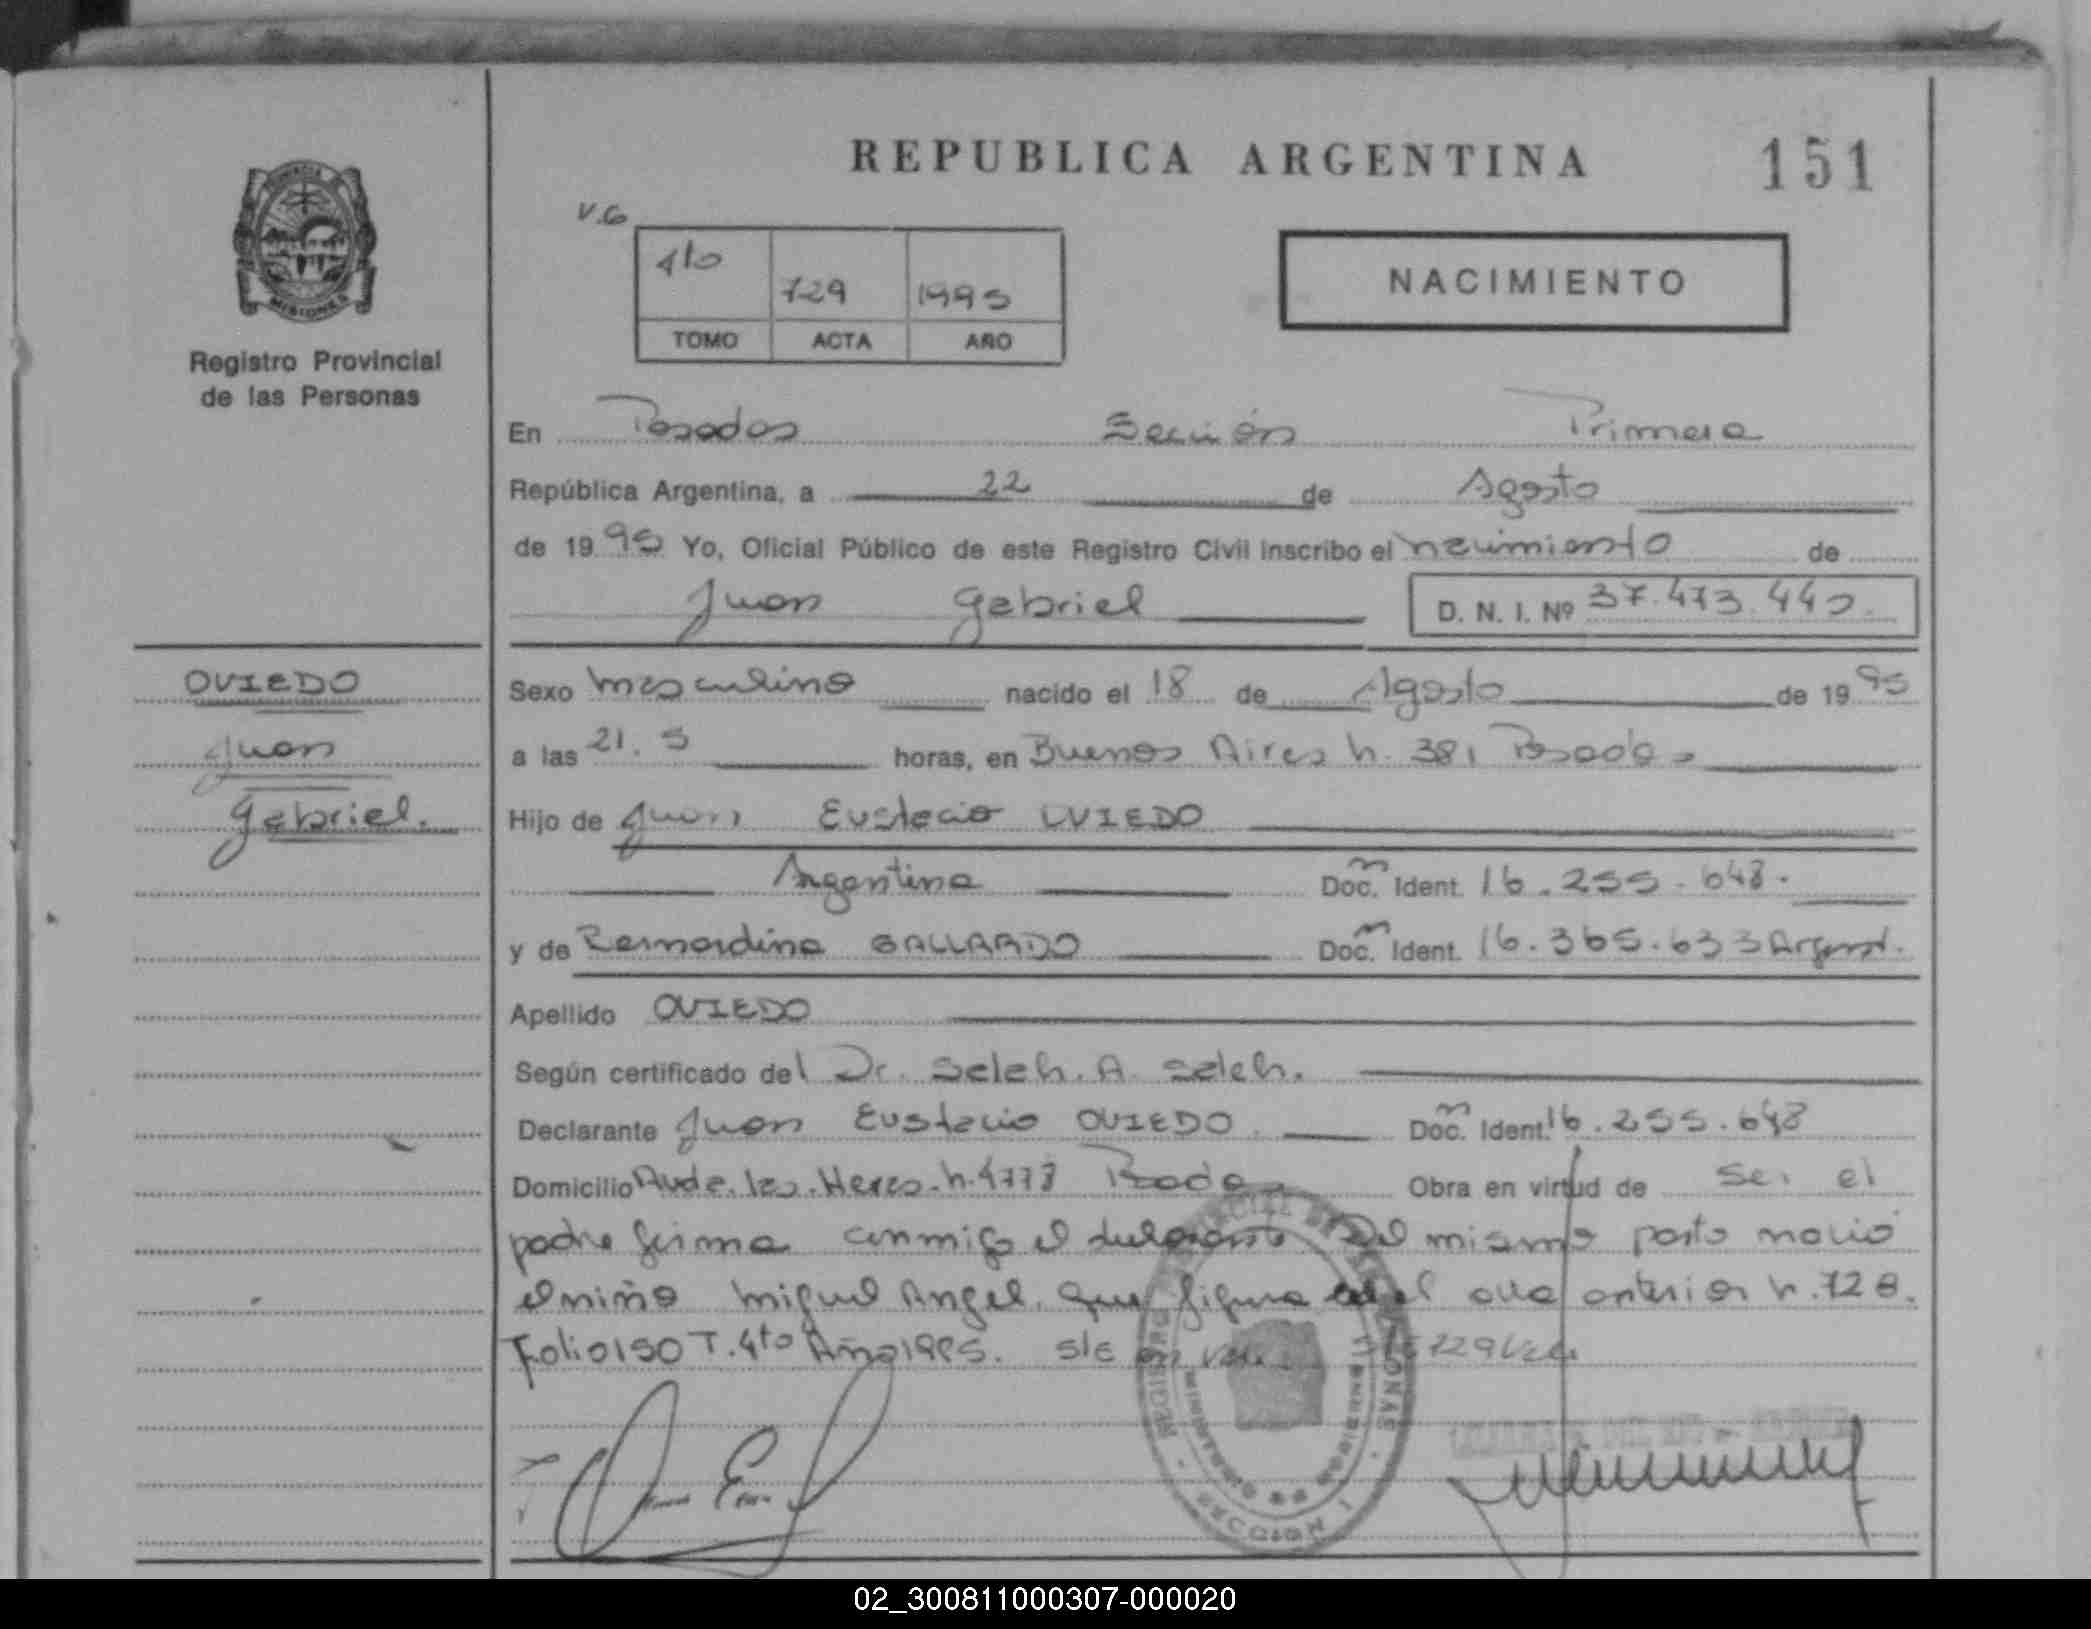 REPUBLICA ARGENTINA
151
V.G
4to
729
1995
TOMO ACTA AÑO
NACIMIENTO
MISIONES
Registro Provincial
de las Personas
En Posadas Sección Primera
República Argentina, a 22 de Agosto
de 1995 Yo, Oficial Público de este Registro Civil inscribo el nacimiento de
Juan Gabriel D. N. I. Nº 37.473.440.
OVIEDO
Juan
Gabriel.
Sexo masculino nacido el 18 de Agosto de 1995
a las 21.5 horas, en Buenos Aires n. 381 Posadas
Hijo de Juan Eustacio OVIEDO
Argentina Doc. Ident. 16.255.648.
y de Bernardina GALLARDO Doc. Ident. 16.365.633 Argent.
Apellido OVIEDO
Según certificado del Dr. Saleh. A. Saleh.
Declarante Juan Eustacio OVIEDO Doc. Ident. 16.255.648
Domicilio Avda. las Heras n. 4773 Posadas Obra en virtud de ser el
padre firma conmigo el declarante Del mismo parto nació
el niño Miguel Angel, que figura en el acta anterior n. 728.
Folio 150 T. 4to Año 1995. S/E
SECCION
02_300811000307-000020